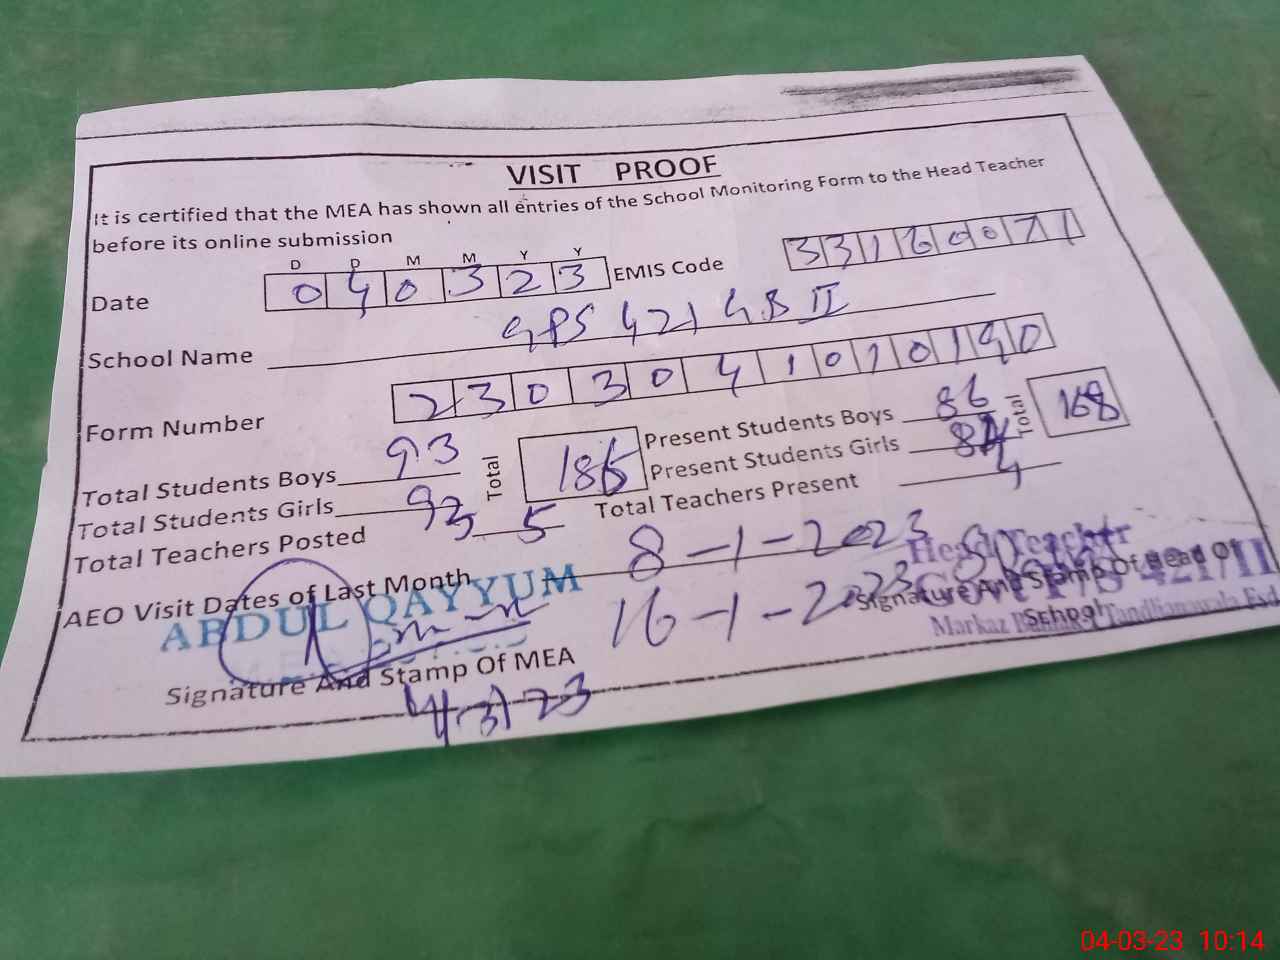 VISIT PROOF
It is certified that the MEA has shown all entries of the School Monitoring Form to the Head Teacher
before its online submission
D D M M Y Y
Date 0 4 0 3 2 3 EMIS Code 3 3 1 6 0 0 7 1
School Name GPS 421 GB II
Form Number 2 3 0 3 0 4 1 0 1 0 1 9 0
Total Students Boys 93 Total 186 Present Students Boys 86 Total 168
Total Students Girls 93 Present Students Girls
Total Teachers Posted 5 Total Teachers Present 4
AEO Visit Dates of Last Month 8-1-2023
16-1-2023
ABDUL QAYYUM
Signature And Stamp Of MEA
4/3/23
Head Teacher
Signature And Stamp Of Head Of
School
421 II
Markaz Tandlianwala Fsd
04-03-23 10:14